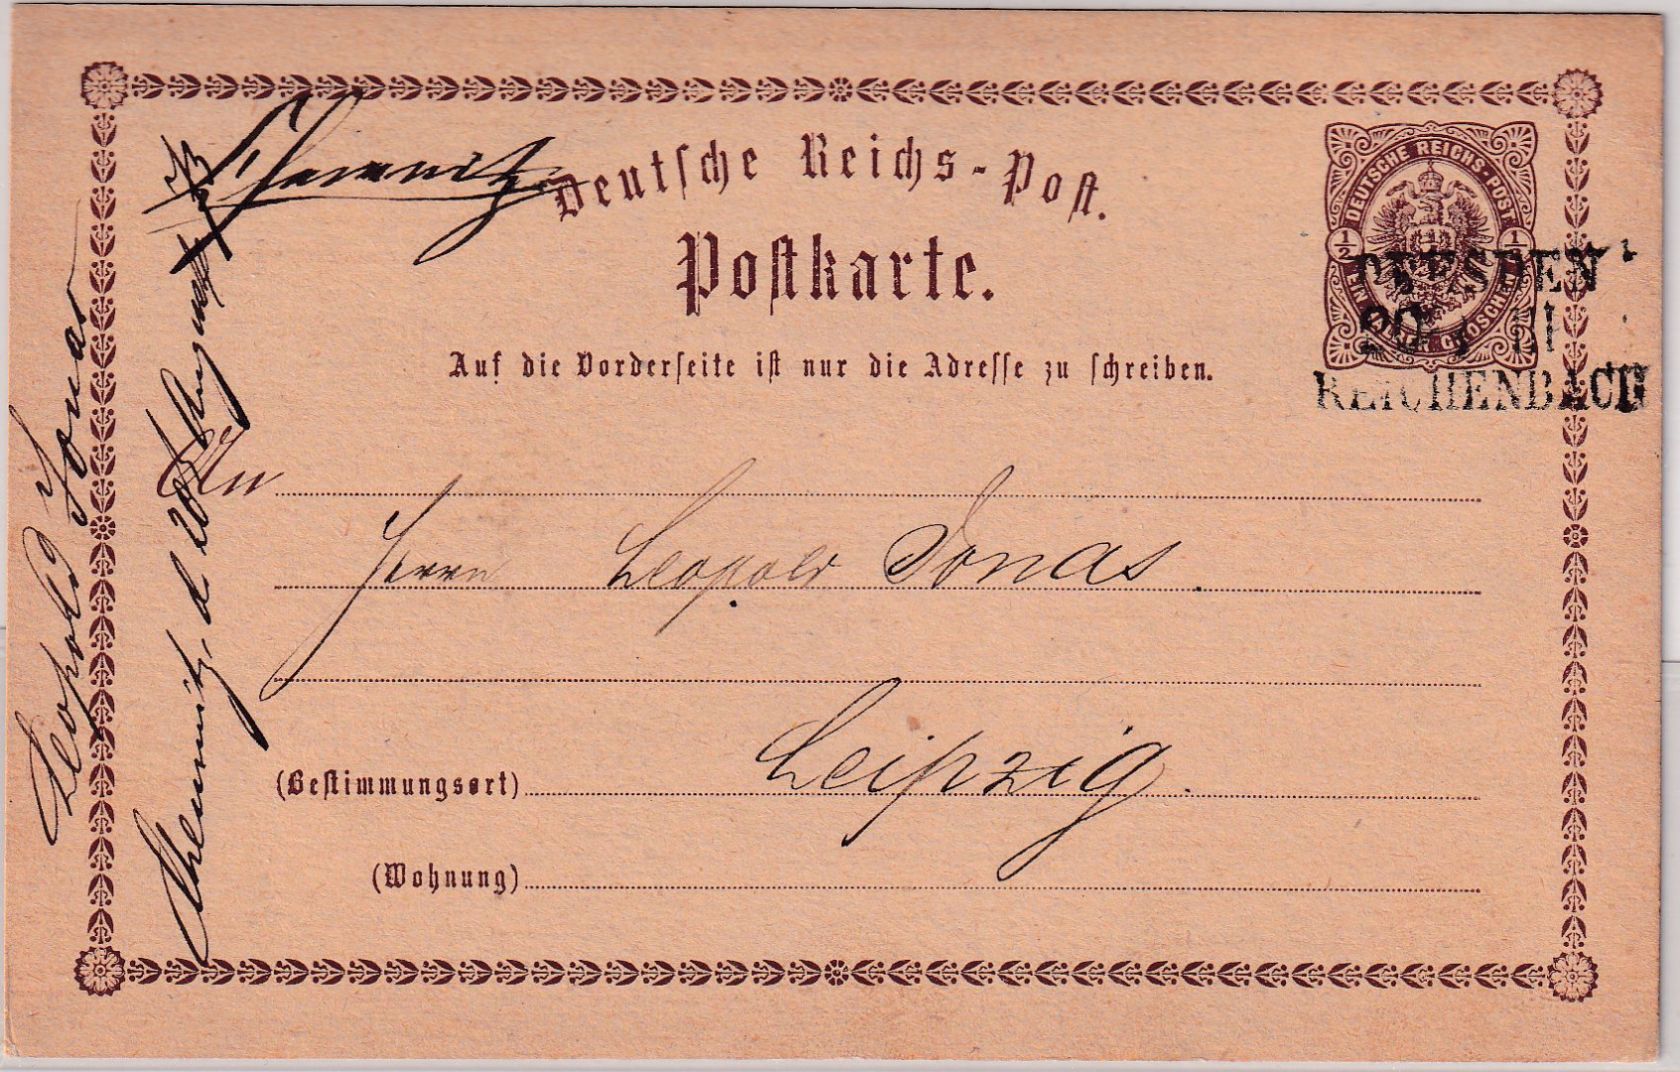 Chemnitz
Deutsche Reichs-Post.
Postkarte.
Auf die Vorderseite ist nur die Adresse zu schreiben.
DEUTSCHE REICHS-POST
1/2 1/2
EIN HALBER GROSCHEN
DRESDEN
20 II
REICHENBACH
An
Herrn Leopold Jonas.
Leipzig.
(Bestimmungsort)
(Wohnung)
Leopold Jonas
Chemnitz, d 20 August